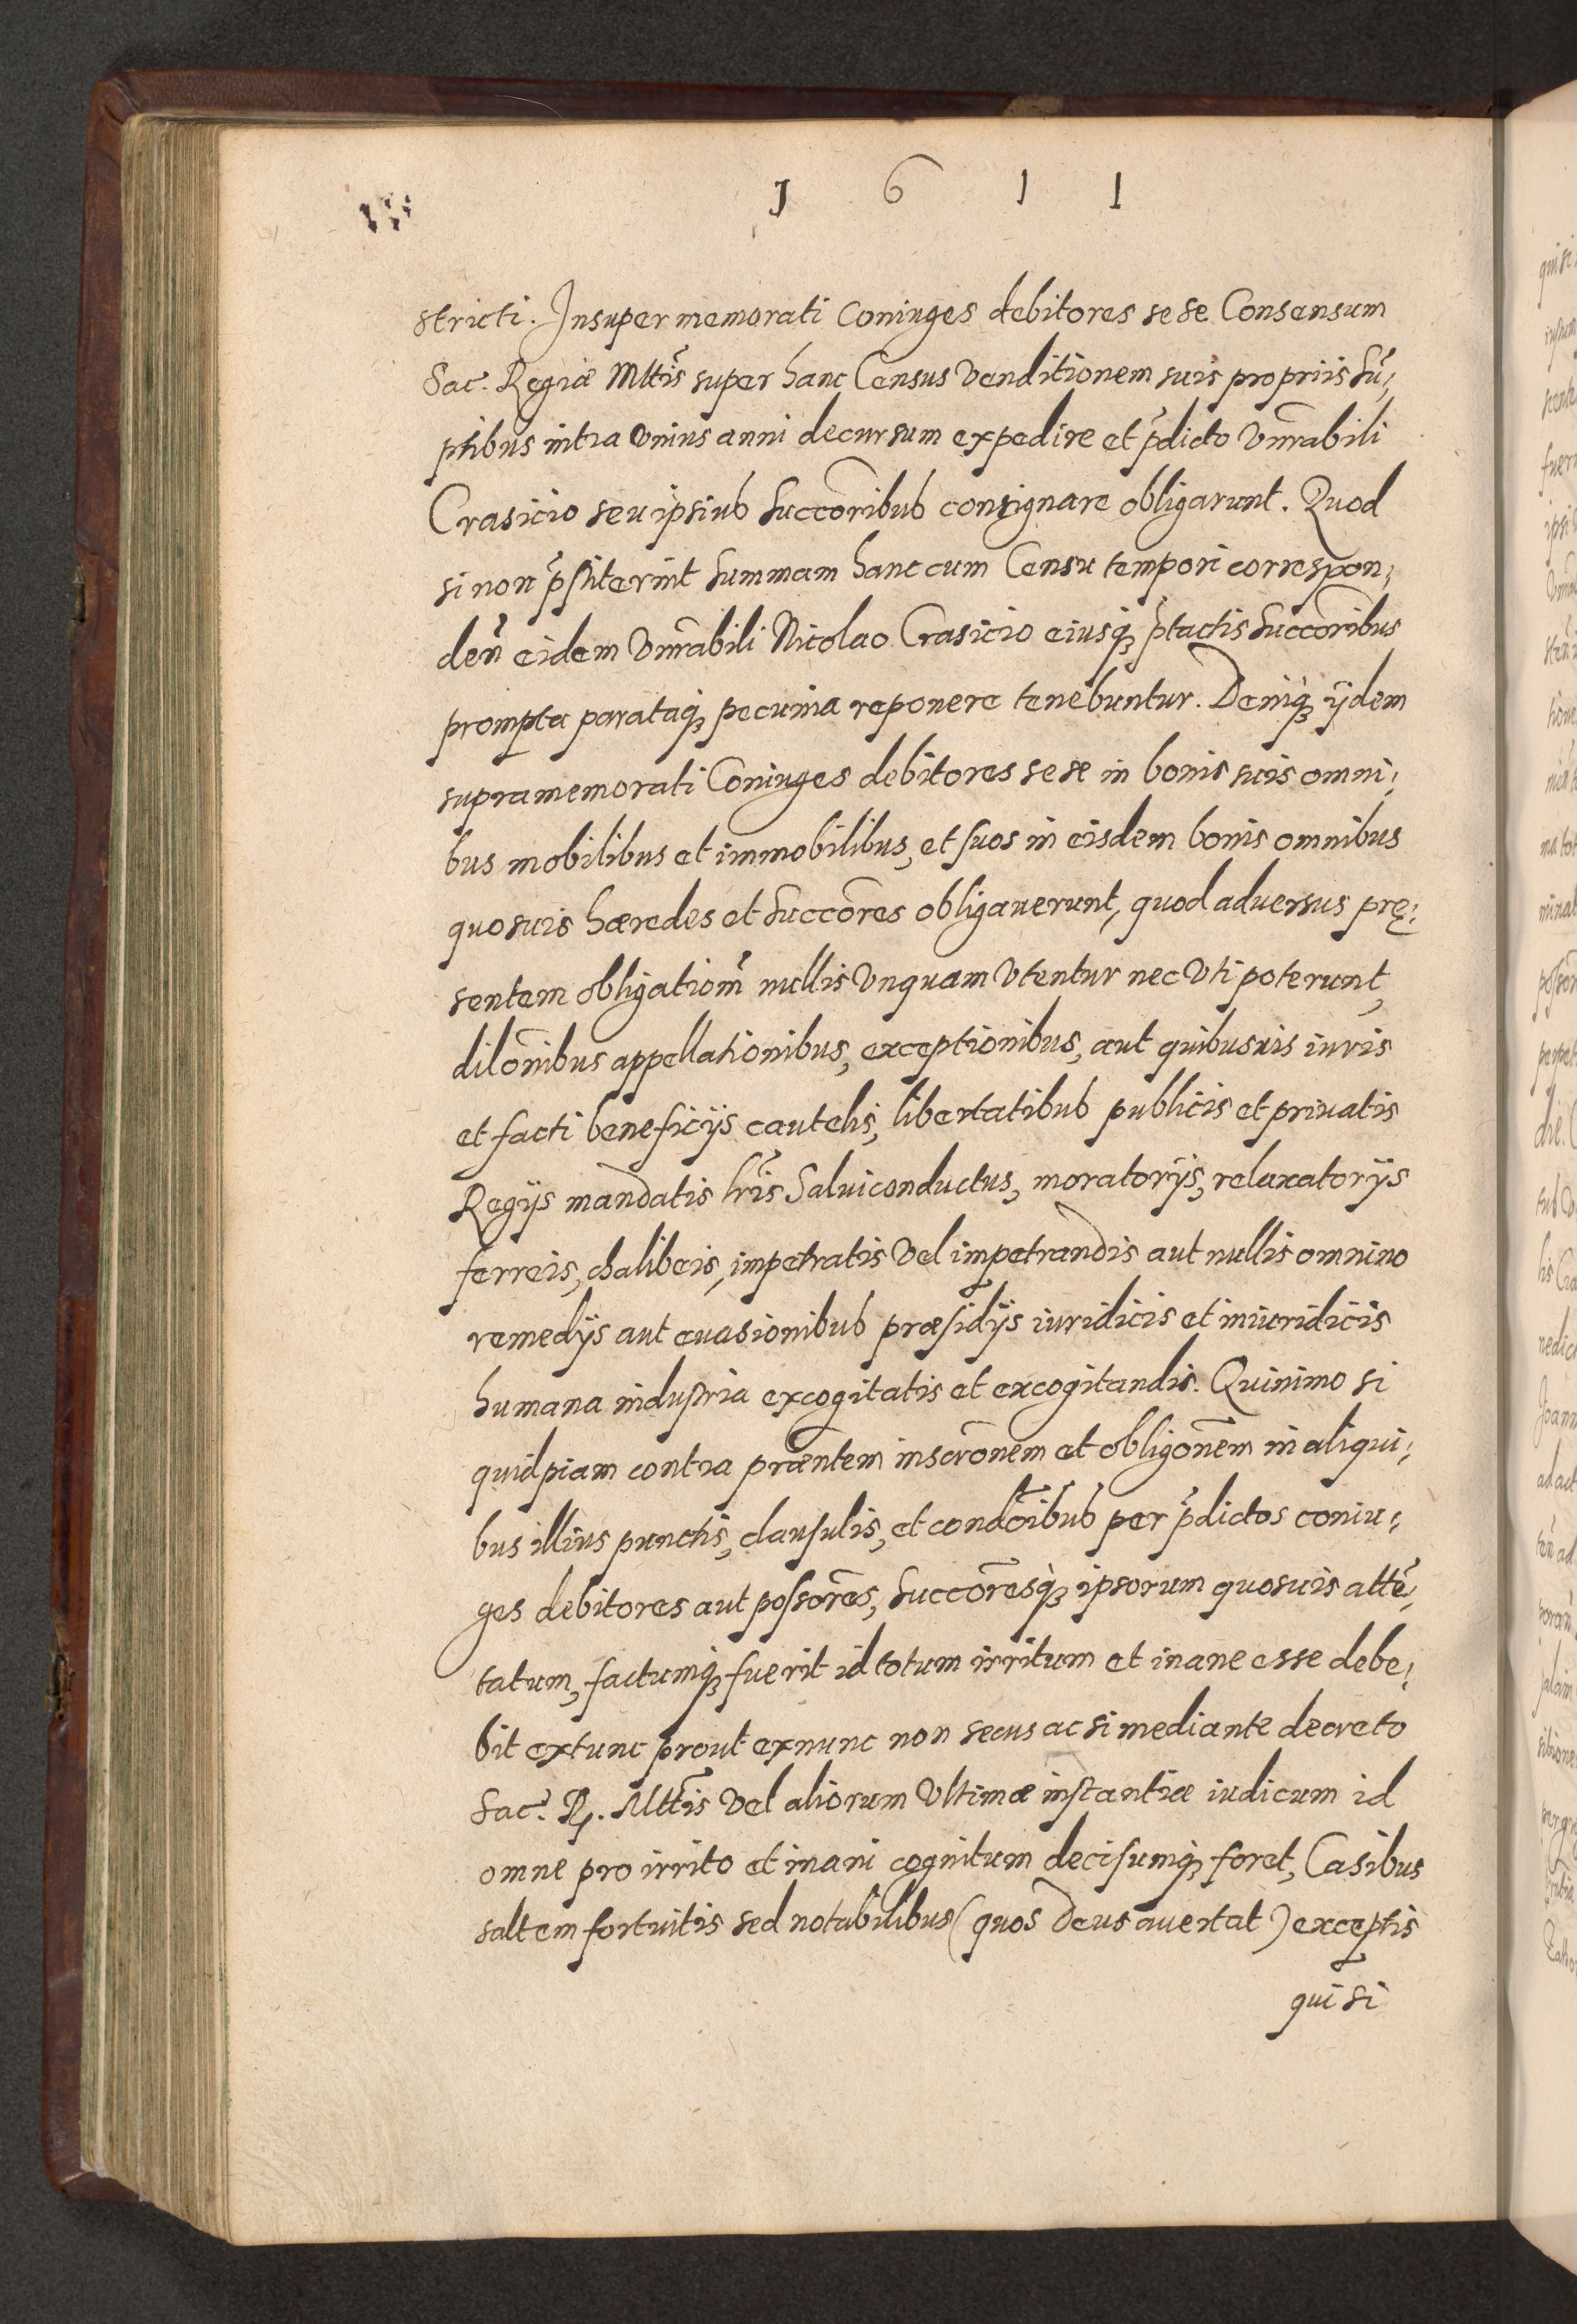 1 6 1 1
stricti. Insuper memorati Coniuges debitores sese Consensum
Sac. Regiæ Mttis̃ super hanc Census venditionem suis propriis sũ,
ptibus intra vnius anni decursum expedire et p̃dicto Vnrãbili
Crasicio seu ipsius succõribus consignare obligarunt. Quod
si non p̃stiterint summam hanc cum Censu tempori correspon,
deñ eidem Vnrãbili Nicolao Crasicio eiusq̃ p̃tactis succõribus
prompta parataq̃ pecunia reponere tenebuntur. Deniq̃ ijdem
supramemorati Coniuges debitores sese in bonis suis omni,
bus mobilibus et immobilibus, et suos in eisdem bonis omnibus
quosuis hæredes et succõres obligauerunt, quod aduersus prę,
sentem obligationm̃ nullis vnquam vtentur nec vti poterunt,
dilõnibus appellationibus, exceptionibus, aut quibusuis iuris
et facti beneficijs cautelis, libertatibus publicis et priuatis
Regijs mandatis lris̃ Saluiconductus, moratorijs, relaxatorijs
ferreis, chalibeis, impetratis vel impetrandis aut nullis omnino
remedijs aut euasionibus præsidijs iuridicis et iniuridicis
humana industria excogitatis et excogitandis. Quinimo si
quidpiam contra præntem inscrõnem et obligõnem in aliqui,
bus illius punctis, clausulis, et condcõibus per p̃dictos coniu,
ges debitores aut possõres, succõresq̃ ipsorum quosuis attẽ,
tatum, factumq̃ fuerit id totum irritum et inane esse debe,
bit extunc prout exnunc non secus ac si mediante decreto
Sac. R. Mttis̃ vel aliorum vltimæ instantiæ iudicum id
omne pro irrito et inani cognitum decisumq̃ foret, Casibus
saltem fortuitis sed notabilibus (quos Deus auertat) exceptis
qui si